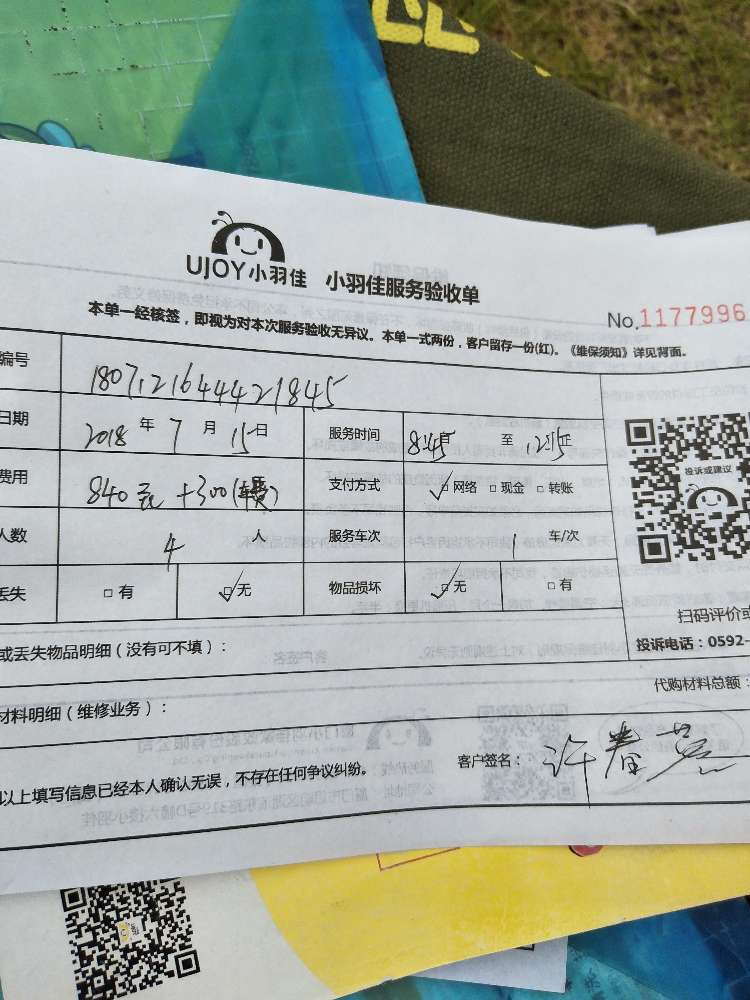 UJOY小羽佳 小羽佳服务验收单
No.1177996
本单一经核签，即视为对本次服务验收无异议。本单一式两份，客户留存一份(红)。《维保须知》详见背面。
编号 1807121644421845
日期 2018 年 7 月 15 日 服务时间 8:45 至 12:15
费用 840元 +300(车费) 支付方式 ☑网络 □现金 □转账
人数 4 人 服务车次 1 车/次
丢失 □有 ☑无 物品损坏 ☑无 □有
投诉或建议
扫码评价或
投诉电话：0592-
或丢失物品明细（没有可不填）：
代购材料总额：
材料明细（维修业务）：
以上填写信息已经本人确认无误，不存在任何争议纠纷。
客户签名：许春